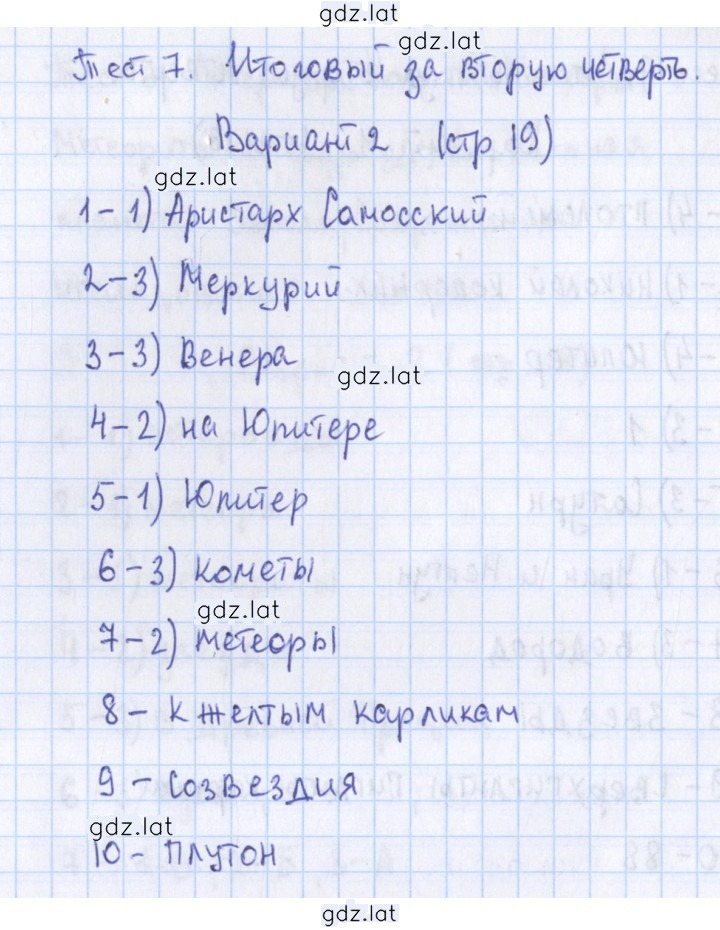 gdz.lat
gdz.lat
Тест 7. Итоговый за вторую четверть.
Вариант 2 (стр 19)
gdz.lat
1-1) Аристарх Самосский
2-3) Меркурий
3-3) Венера
gdz.lat
4-2) на Юпитере
5-1) Юпитер
6-3) кометы
gdz.lat
7-2) метеоры
8- к желтым карликам
9-созвездия
gdz.lat
10- Плутон
gdz.lat